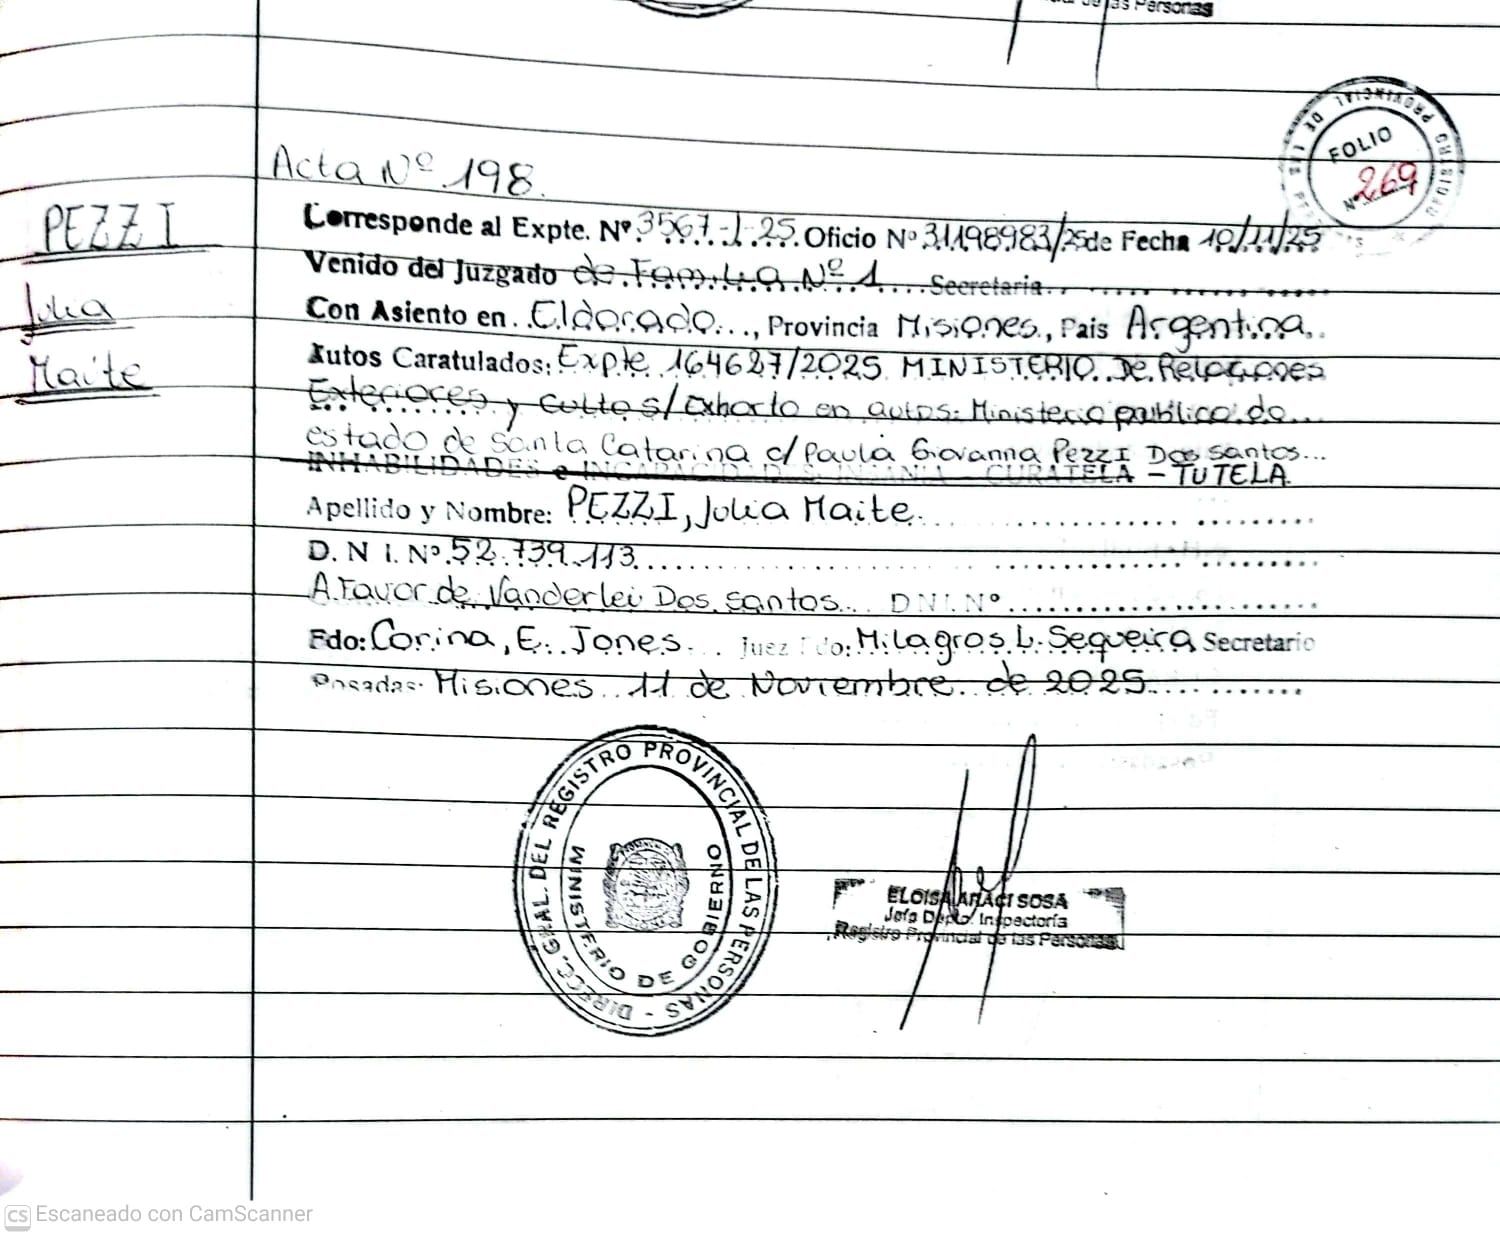 de las Personas
REGISTRO PROVINCIAL DE LAS PERS
FOLIO
Nº 269
Acta Nº 198.
PEZZI
Julia
Maite
Corresponde al Expte. Nº 3567-J-25. Oficio Nº 31198983/25 de Fecha 10/11/25
Venido del Juzgado de Familia Nº 1 .... Secretaria..
Con Asiento en.. Eldorado..., Provincia Misiones., Pais Argentina..
Autos Caratulados: Expte 164627/2025 MINISTERIO De Relaciones
Exteriores y Culto s/ Exhorto en autos: Ministerio publico do...
estado de Santa Catarina c/ Paula Giovanna Pezzi Dos Santos...
INHABILIDADES e INCAPACIDADES INSANIA - CURATELA - TUTELA
Apellido y Nombre: PEZZI, Julia Maite.
D. N I. Nº. 52.739.113.
A Favor de Vanderlei Dos Santos.. D N I. Nº
Fdo: Corina, E. Jones... Juez Fdo: Milagros L. Sequeira Secretario
Posadas. Misiones.. 11 de Noviembre. de 2025.
DIRECC. GRAL. DEL REGISTRO PROVINCIAL DE LAS PERSONAS -
MINISTERIO DE GOBIERNO
ELOISA ARACI SOSA
Jefa Depto. Inspectoría
Registro Provincial de las Personas
CS Escaneado con CamScanner